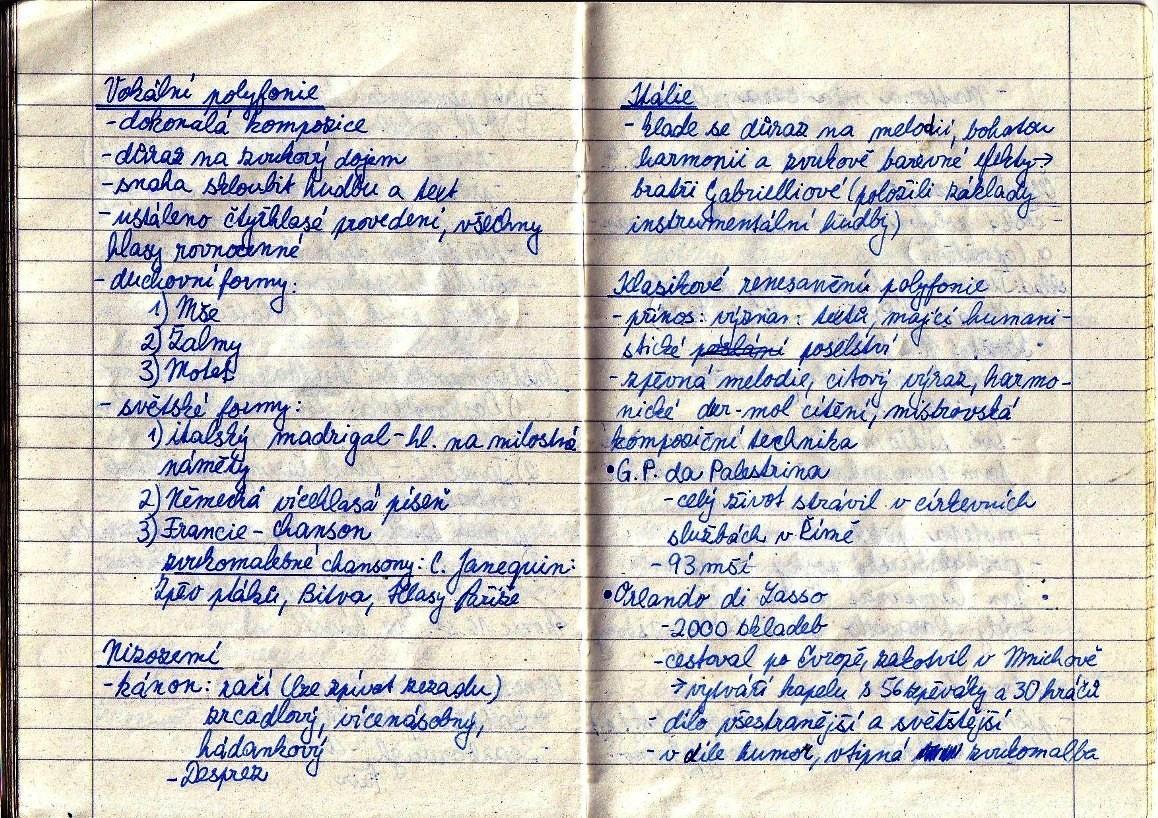 Vokální polyfonie
- dokonálá kompozice
- důraz na zvukový dojem
- snaha skloubit hudbu a text
- ustáleno čtyřhlasé provedení, všechny
hlasy rovnocenné
- duchovní formy:
1) Mše
2) Žalmy
3) Motet
- světské formy:
1) italský madrigal - hl. na milostná
náměty
2) Německá vícehlasá píseň
3) Francie - chanson
zvukomalebné chansony: C. Janequin:
Zpěv ptáků, Bitva, Hlasy Paříže
Nizozemí
- kánon: račí (lze zpívat zezadu)
zrcadlový, vícenásobný,
hádankový
- Desprez
Itálie
- klade se důraz na melodii, bohatou
harmonii a zvukově barevné efekty →
bratři Gabrielliové (položili základy
instrumentální hudby)
Klasikové renesanční polyfonie
- přínos: význam: textů, mající humani-
stické poslání poselství
- zpěvná melodie, citový výraz, harmo-
nické dur-mol cítění, mistrovská
kompoziční technika
• G.P. da Palestrina
- celý život strávil v církevních
službách v Římě
- 93 mší
• Orlando di Lasso
- 2000 skladeb
- cestoval po Evropě, zakotvil v Mnichově
→ vytváří kapelu s 56 zpěváky a 30 hráči
- dílo všestranější a světštější
- v díle humor, vtipná zvukomalba